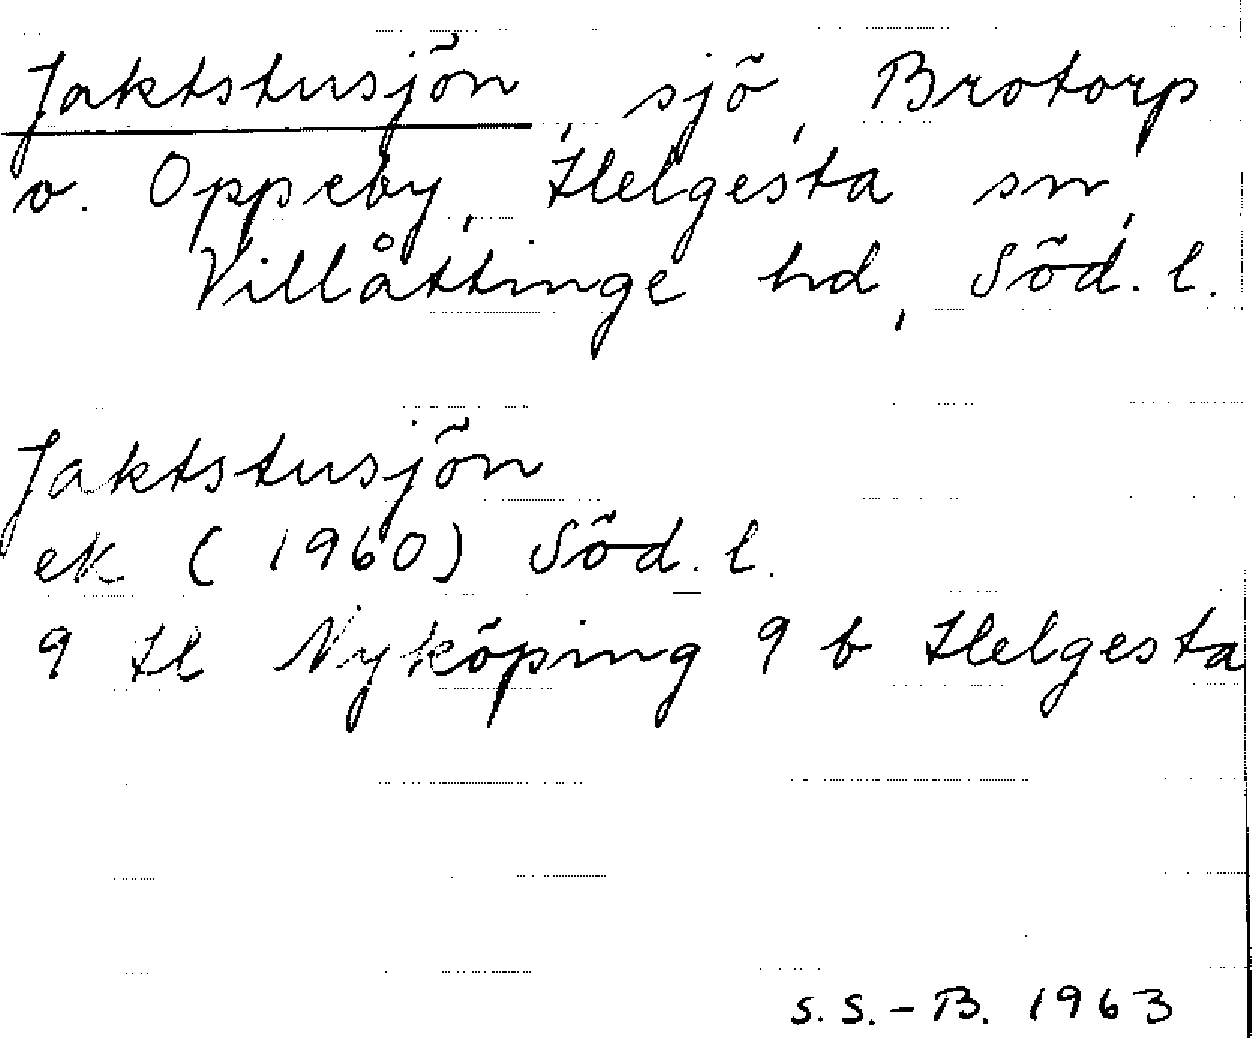 Jaktstusjön, sjö, Brotorp
o. Oppeby, Helgesta sn,
Villåttinge hd, Söd. l.
Jaktstusjön
ek (1960) Söd. l.
9 H Nyköping 9 b Helgesta
S. S.-B. 1963